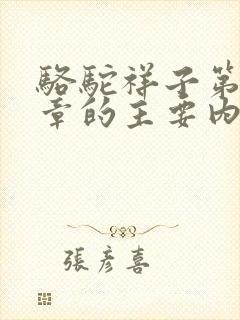 駱駝祥子第
章的主要内
張彥喜